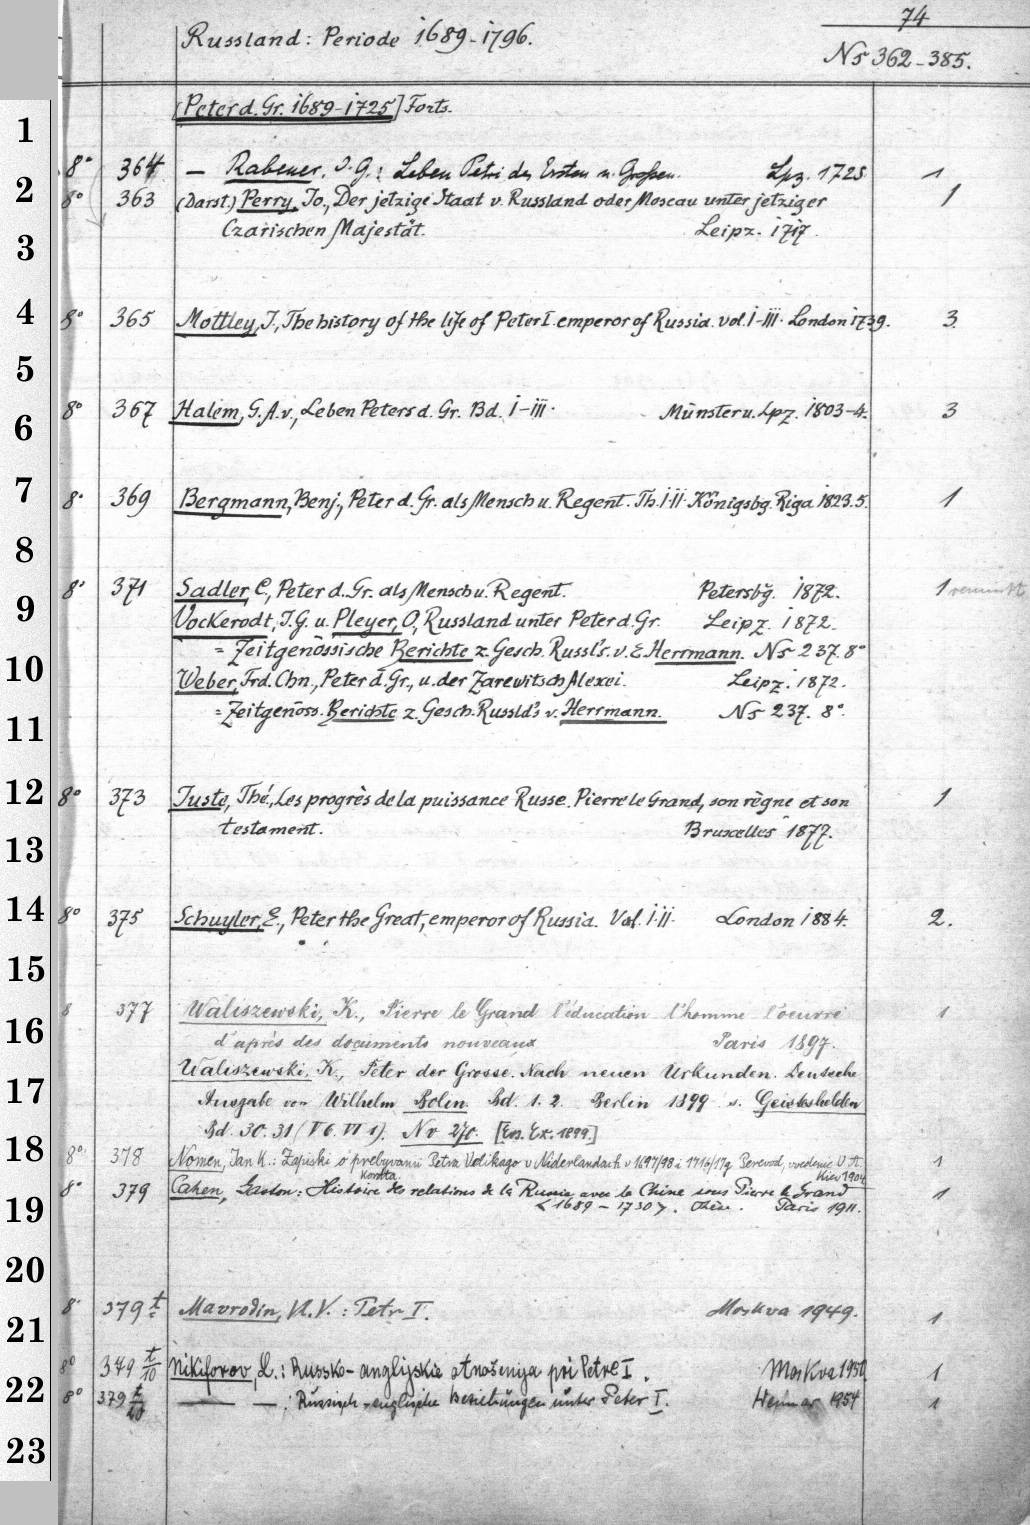 74
Russland: Periode 1689-1796.
Nr 362-385.
1
[Peter d. Gr. 1689-1725] Forts.
2
8° 364 — Rabener, J. G.: Leben Petri des Ersten u. Großen. Lpz. 1725 1
8° 363 (Darst.) Perry, Jo., Der jetzige Staat v. Russland oder Moscau unter jetziger 1
3
Czarischen Majestät. Leipz. 1717.
4
8° 365 Mottley, J., The history of the life of Peter I. emperor of Russia. vol. I-III. London 1739. 3
5
6
8° 367 Halem, G. A. v., Leben Peters d. Gr. Bd. I-III. Münster u. Lpz. 1803-4. 3
7
8° 369 Bergmann, Benj., Peter d. Gr. als Mensch u. Regent. Th. I-II. Königsbg. Riga 1823.5. 1
8
9
8° 371 Sadler, C., Peter d. Gr. als Mensch u. Regent. Petersbg. 1872. 1 vermisst
Vockerodt, J. G. u. Pleyer, O., Russland unter Peter d. Gr. Leipz. 1872.
10
= Zeitgenössische Berichte z. Gesch. Russl's. v. E. Herrmann. Nr 237. 8°
Weber, Frd. Chn., Peter d. Gr., u. der Zarewitsch Alexei. Leipz. 1872.
11
= Zeitgenöss. Berichte z. Gesch. Russld's v. Herrmann. Nr 237. 8°.
12
8° 373 Juste, Thé., Les progrès de la puissance Russe. Pierre le Grand, son règne et son 1
13
testament. Bruxelles 1877.
14
8° 375 Schuyler, E., Peter the Great, emperor of Russia. Vol. I-II. London 1884. 2.
15
16
8 377 Waliszewski, K., Pierre le Grand l'éducation l'homme l'oeuvre 1
d'après des documents nouveaux Paris 1897.
17
Waliszewski, K., Peter der Grosse. Nach neuen Urkunden. Deutsche
Ausgabe von Wilhelm Bolin. Bd. 1. 2. Berlin 1899 s. Geisteshelden
18
Bd. 30. 31 (V 6. VI 1). Nr 270. [Ers. Ex. 1899.]
8° 378 Nomen, Jan K.: Zapiski o prebyvanii Petra Velikago v Niderlandach v 1697/98 i 1716/17g Perevod, vvedenie V. A. 1
Kordta. Kiev 1904
19
8° 379 Cahen, Gaston: Histoire des relations de la Russie avec la Chine sous Pierre le Grand 1
<1689-1730>. Paris 1911.
20
21
8° 379 t/c Mavrodin, Vl. V.: Petr I. Moskva 1949. 1
22
8° 349 t/10 Nikiforov, L.: Russko-anglijskie otnošenija pri Petre I. Moskva 1950 1
8° 379 t/20 — —: Russisch-englische Beziehungen unter Peter I. Weimar 1954 1
23